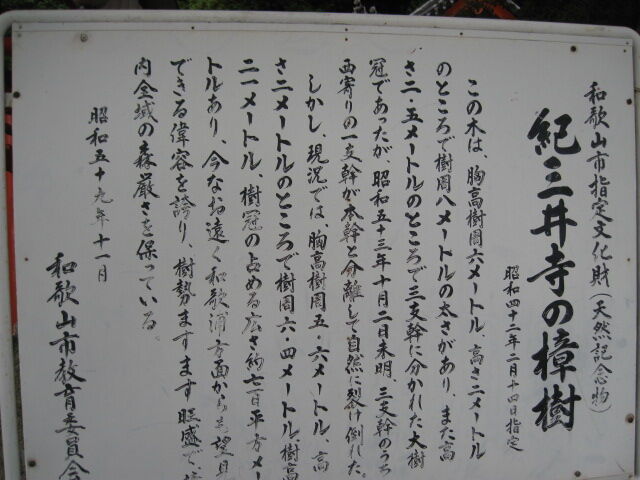 和歌山市指定文化財(天然記念物)
紀三井寺の樟樹
昭和四十二年二月十四日指定
この木は、胸高樹囲六メートル、高さ二メートル
のところで樹囲八メートルの太さがあり、また高
さ二・五メートルのところで三支幹に分かれた大樹
冠であったが、昭和五十三年十月二日未明、三支幹のうち
西寄りの一支幹が本幹と分離して自然に裂け倒れた。
しかし、現況では、胸高樹囲五・六メートル、高
さ二メートルのところで樹囲六・四メートル、樹高
二一メートル、樹冠の占める広さ約七百平方メー
トルあり、今なお遠く和歌浦方面からも望見
できる偉容を誇り、樹勢ますます旺盛で、境
内全域の森厳さを保っている。
昭和五十九年十一月
和歌山市教育委員会